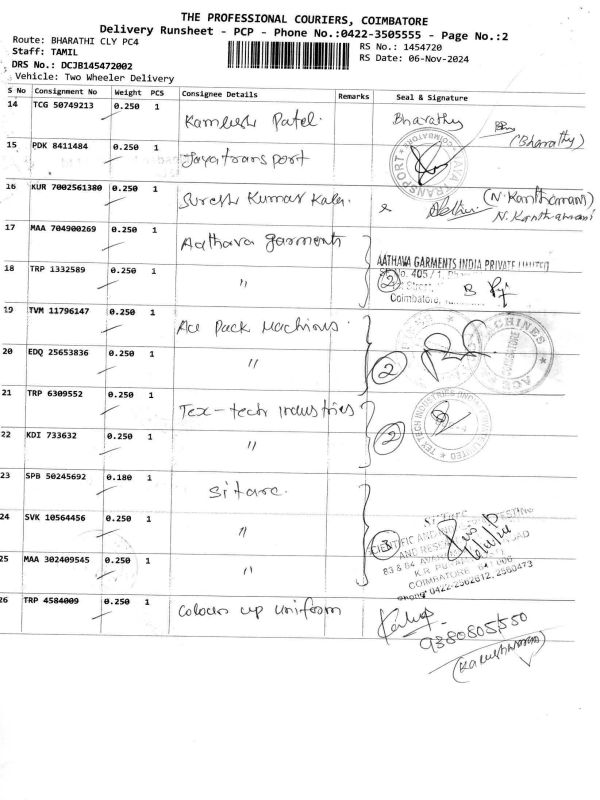 THE PROFESSIONAL COURIERS, COIMBATORE
Delivery Runsheet - PCP - Phone No.:0422-3505555 - Page No.:2
Route: BHARATHI CLY PC4
RS No.: 1454720
Staff: TAMIL
RS Date: 06-Nov-2024
DRS No.: DCJB145472002
Vehicle: Two Wheeler Delivery
S No Consignment No Weight PCS Consignee Details Remarks Seal & Signature
14 TCG 50749213 0.250 1 Kamlesh Patel. Bharathy
(Bharathy)
15 PDK 8411484 0.250 1 Jayatransport
16 KUR 7002561380 0.250 1 Suresh Kumar (N. Kanthamani)
N. Kanthamani
17 MAA 704900269 0.250 1 Aathava garments
AATHAVA GARMENTS INDIA PRIVATE LIMITED
18 TRP 1332589 0.250 1 " 2
Coimbatore,
19 TVM 11796147 0.250 1 Ace Pack Machines.
20 EDQ 25653836 0.250 1 " 2
21 TRP 6309552 0.250 1 Tex-tech industries
22 KDI 733632 0.250 1 " 2
23 SPB 50245692 0.180 1 Sitarc.
24 SVK 10564456 0.250 1 " 3
25 MAA 302409545 0.250 1 "
COIMBATORE 641 006
Phone 0422-2562612, 2560473
26 TRP 4584009 0.250 1 Colours up uniform
9380805550